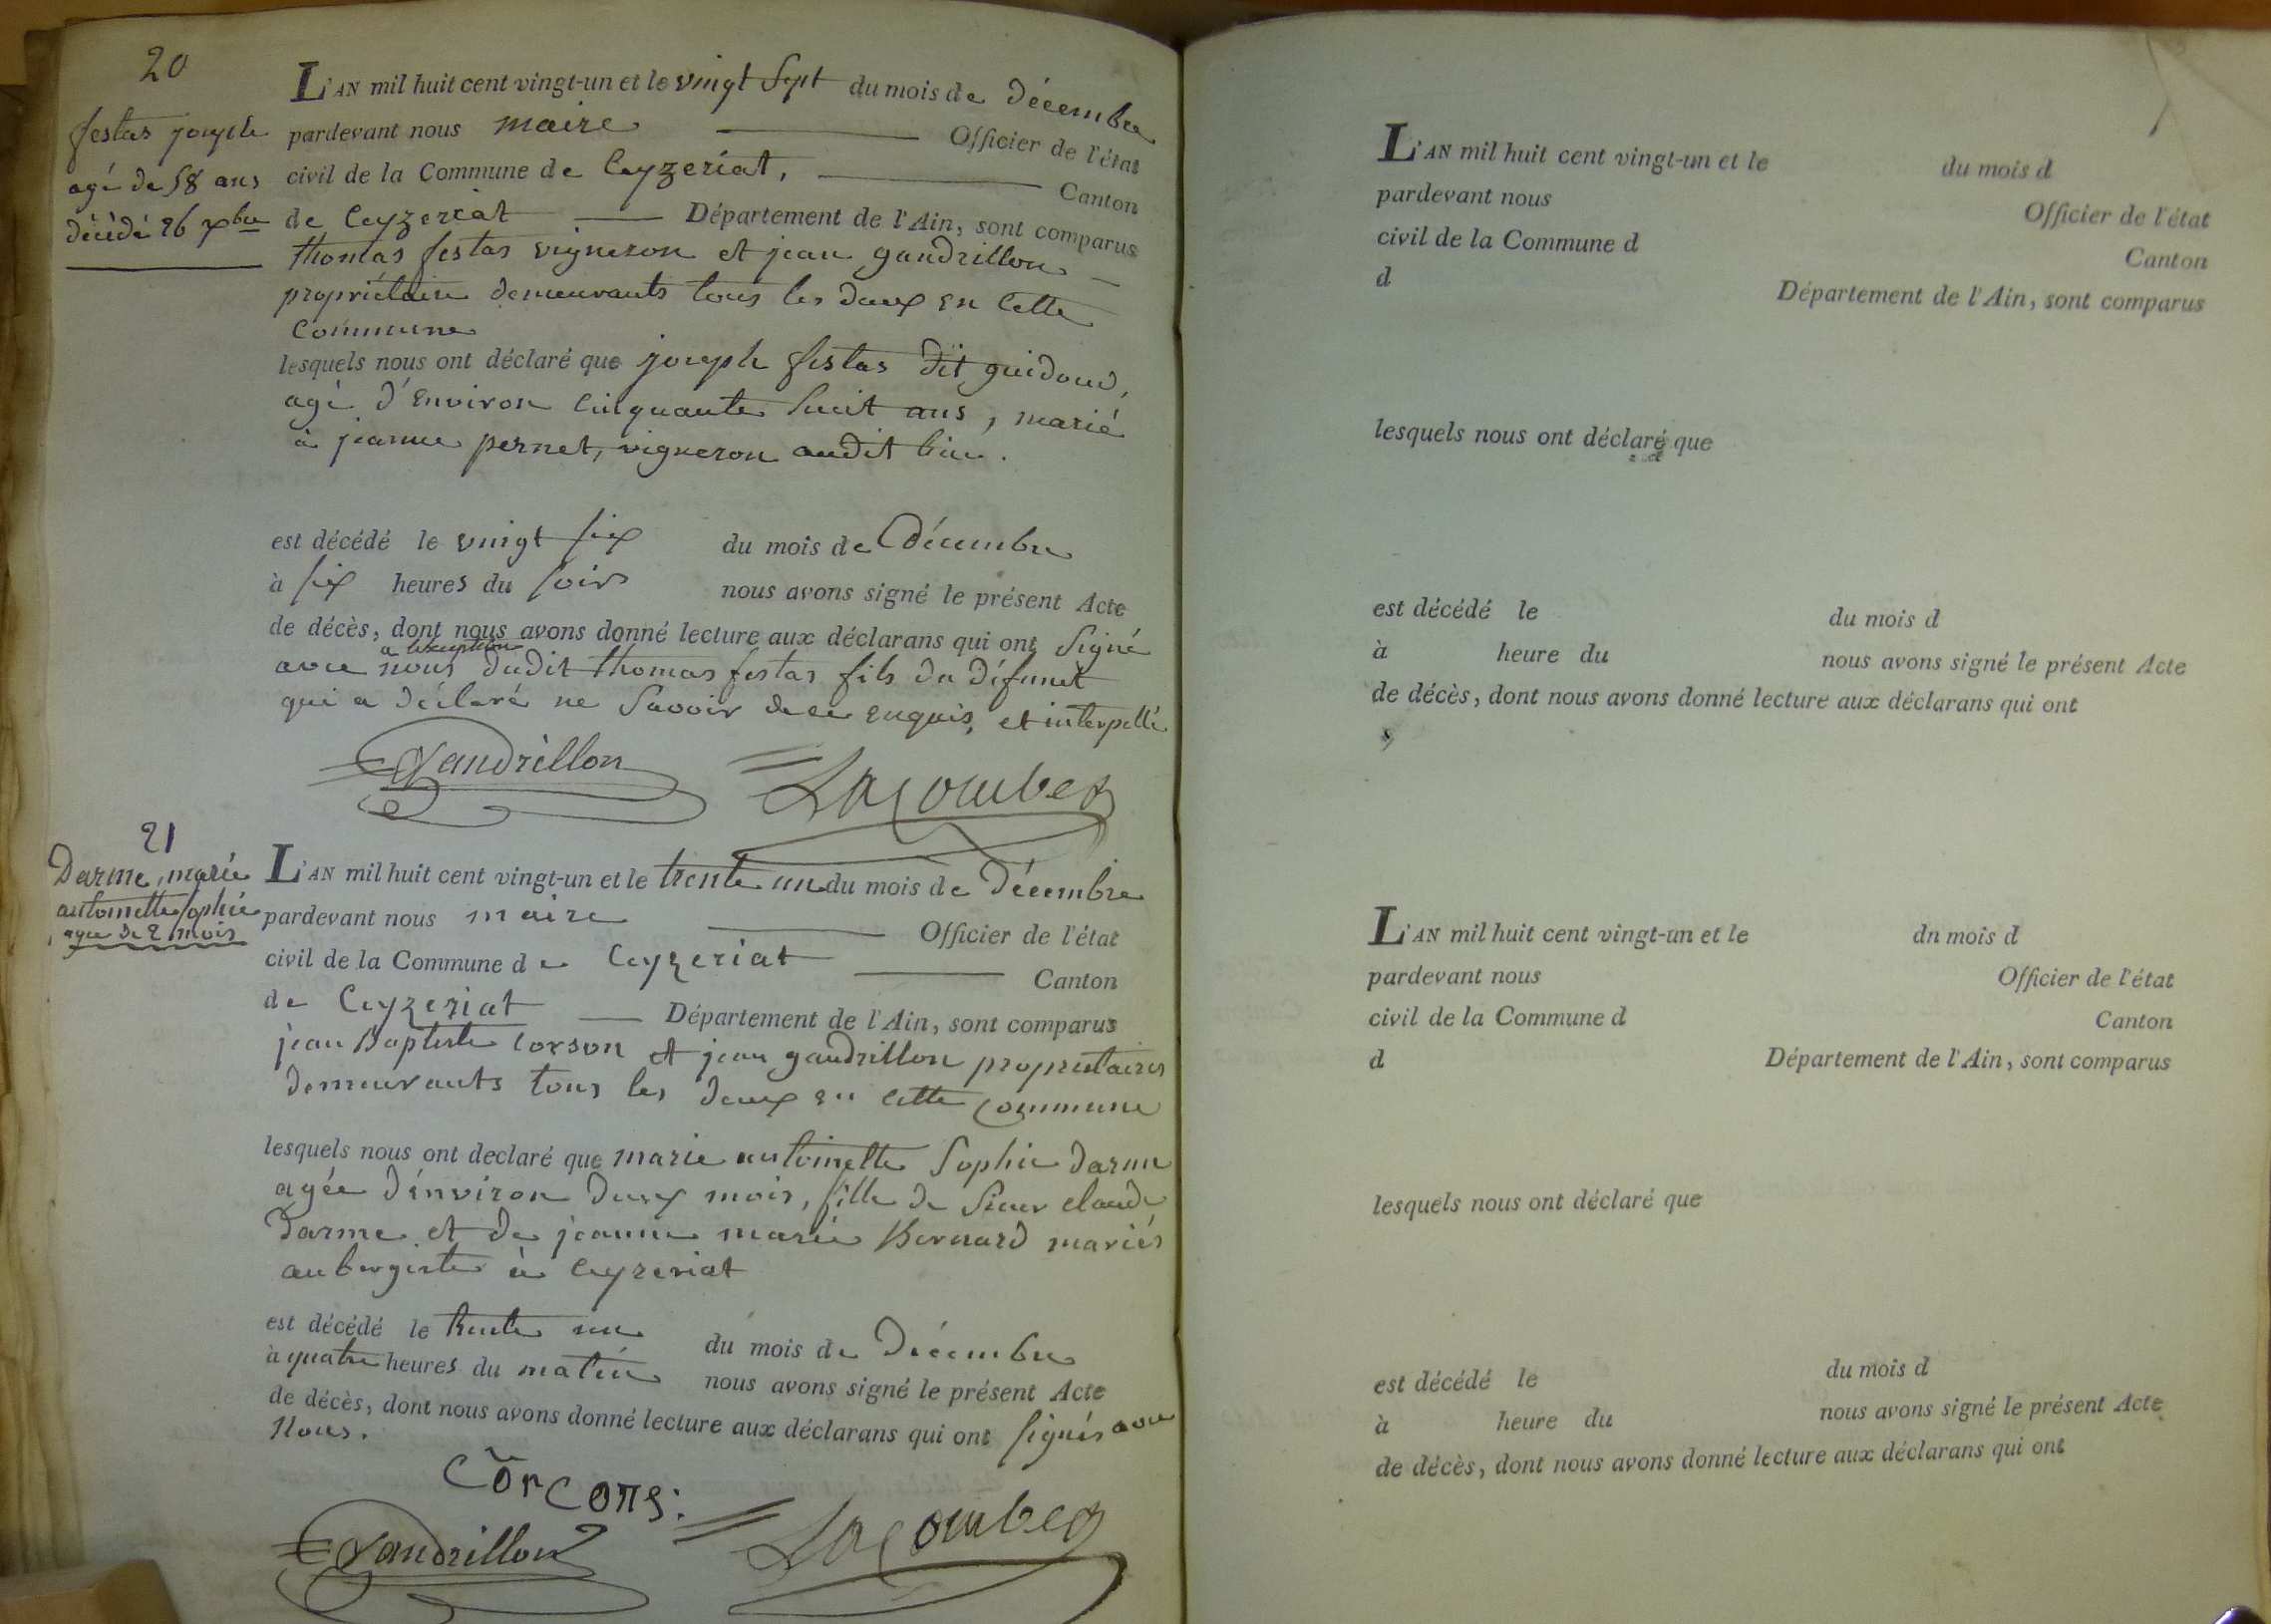 20
festas joseph
agé de 58 ans
décédé 26 xbre
L'AN mil huit cent vingt-un et le vingt sept du mois de décembre
pardevant nous maire Officier de l'état
civil de la Commune de Ceyzeriat, Canton
de Ceyzeriat Département de l'Ain, sont comparus
thomas festas vigneron et jean gaudrillon
propriétaire demeurants tous les deux en cette
commune
lesquels nous ont déclaré que joseph festas dit guidoud,
agé d'environ cinquante huit ans, marié
à jeanne pernet, vigneron audit lieu.
est décédé le vingt six du mois de décembre
à six heures du soir nous avons signé le présent Acte
de décès, dont nous avons donné lecture aux déclarans qui ont signé
a lexception
avec nous dudit thomas festas fils du défunct
qui a déclaré ne savoir de ce enquis, et interpellé
Gaudrillon Lacombe
21
Darme, marie
antoinette sophie
agee de 2 mois
L'AN mil huit cent vingt-un et le trente un du mois de Décembre
pardevant nous maire Officier de l'état
civil de la Commune de Ceyzeriat Canton
de Ceyzeriat Département de l'Ain, sont comparus
jean Baptiste Corson et jean gaudrillon propriétaires
demeurants tous les deux en cette commune
lesquels nous ont declaré que marie antoinette Sophie darme
agée d'énviron deux mois, fille de sieur claude
Darme et de jeanne marie Bernard mariés
aubergiste à Ceyzeriat
est décédé le trente un du mois de Décembre
à quatre heures du matin nous avons signé le présent Acte
de décès, dont nous avons donné lecture aux déclarans qui ont signés avec
Nous.
Corcons.
Gaudrillon Lacombe
L'AN mil huit cent vingt-un et le du mois d
pardevant nous Officier de l'état
civil de la Commune d Canton
d Département de l'Ain, sont comparus
lesquels nous ont déclaré que
est décédé le du mois d
à heure du nous avons signé le présent Acte
de décès, dont nous avons donné lecture aux déclarans qui ont
L'AN mil huit cent vingt-un et le dn mois d
pardevant nous Officier de l'état
civil de la Commune d Canton
d Département de l'Ain, sont comparus
lesquels nous ont déclaré que
est décédé le du mois d
à heure du nous avons signé le présent Acte
de décès, dont nous avons donné lecture aux déclarans qui ont